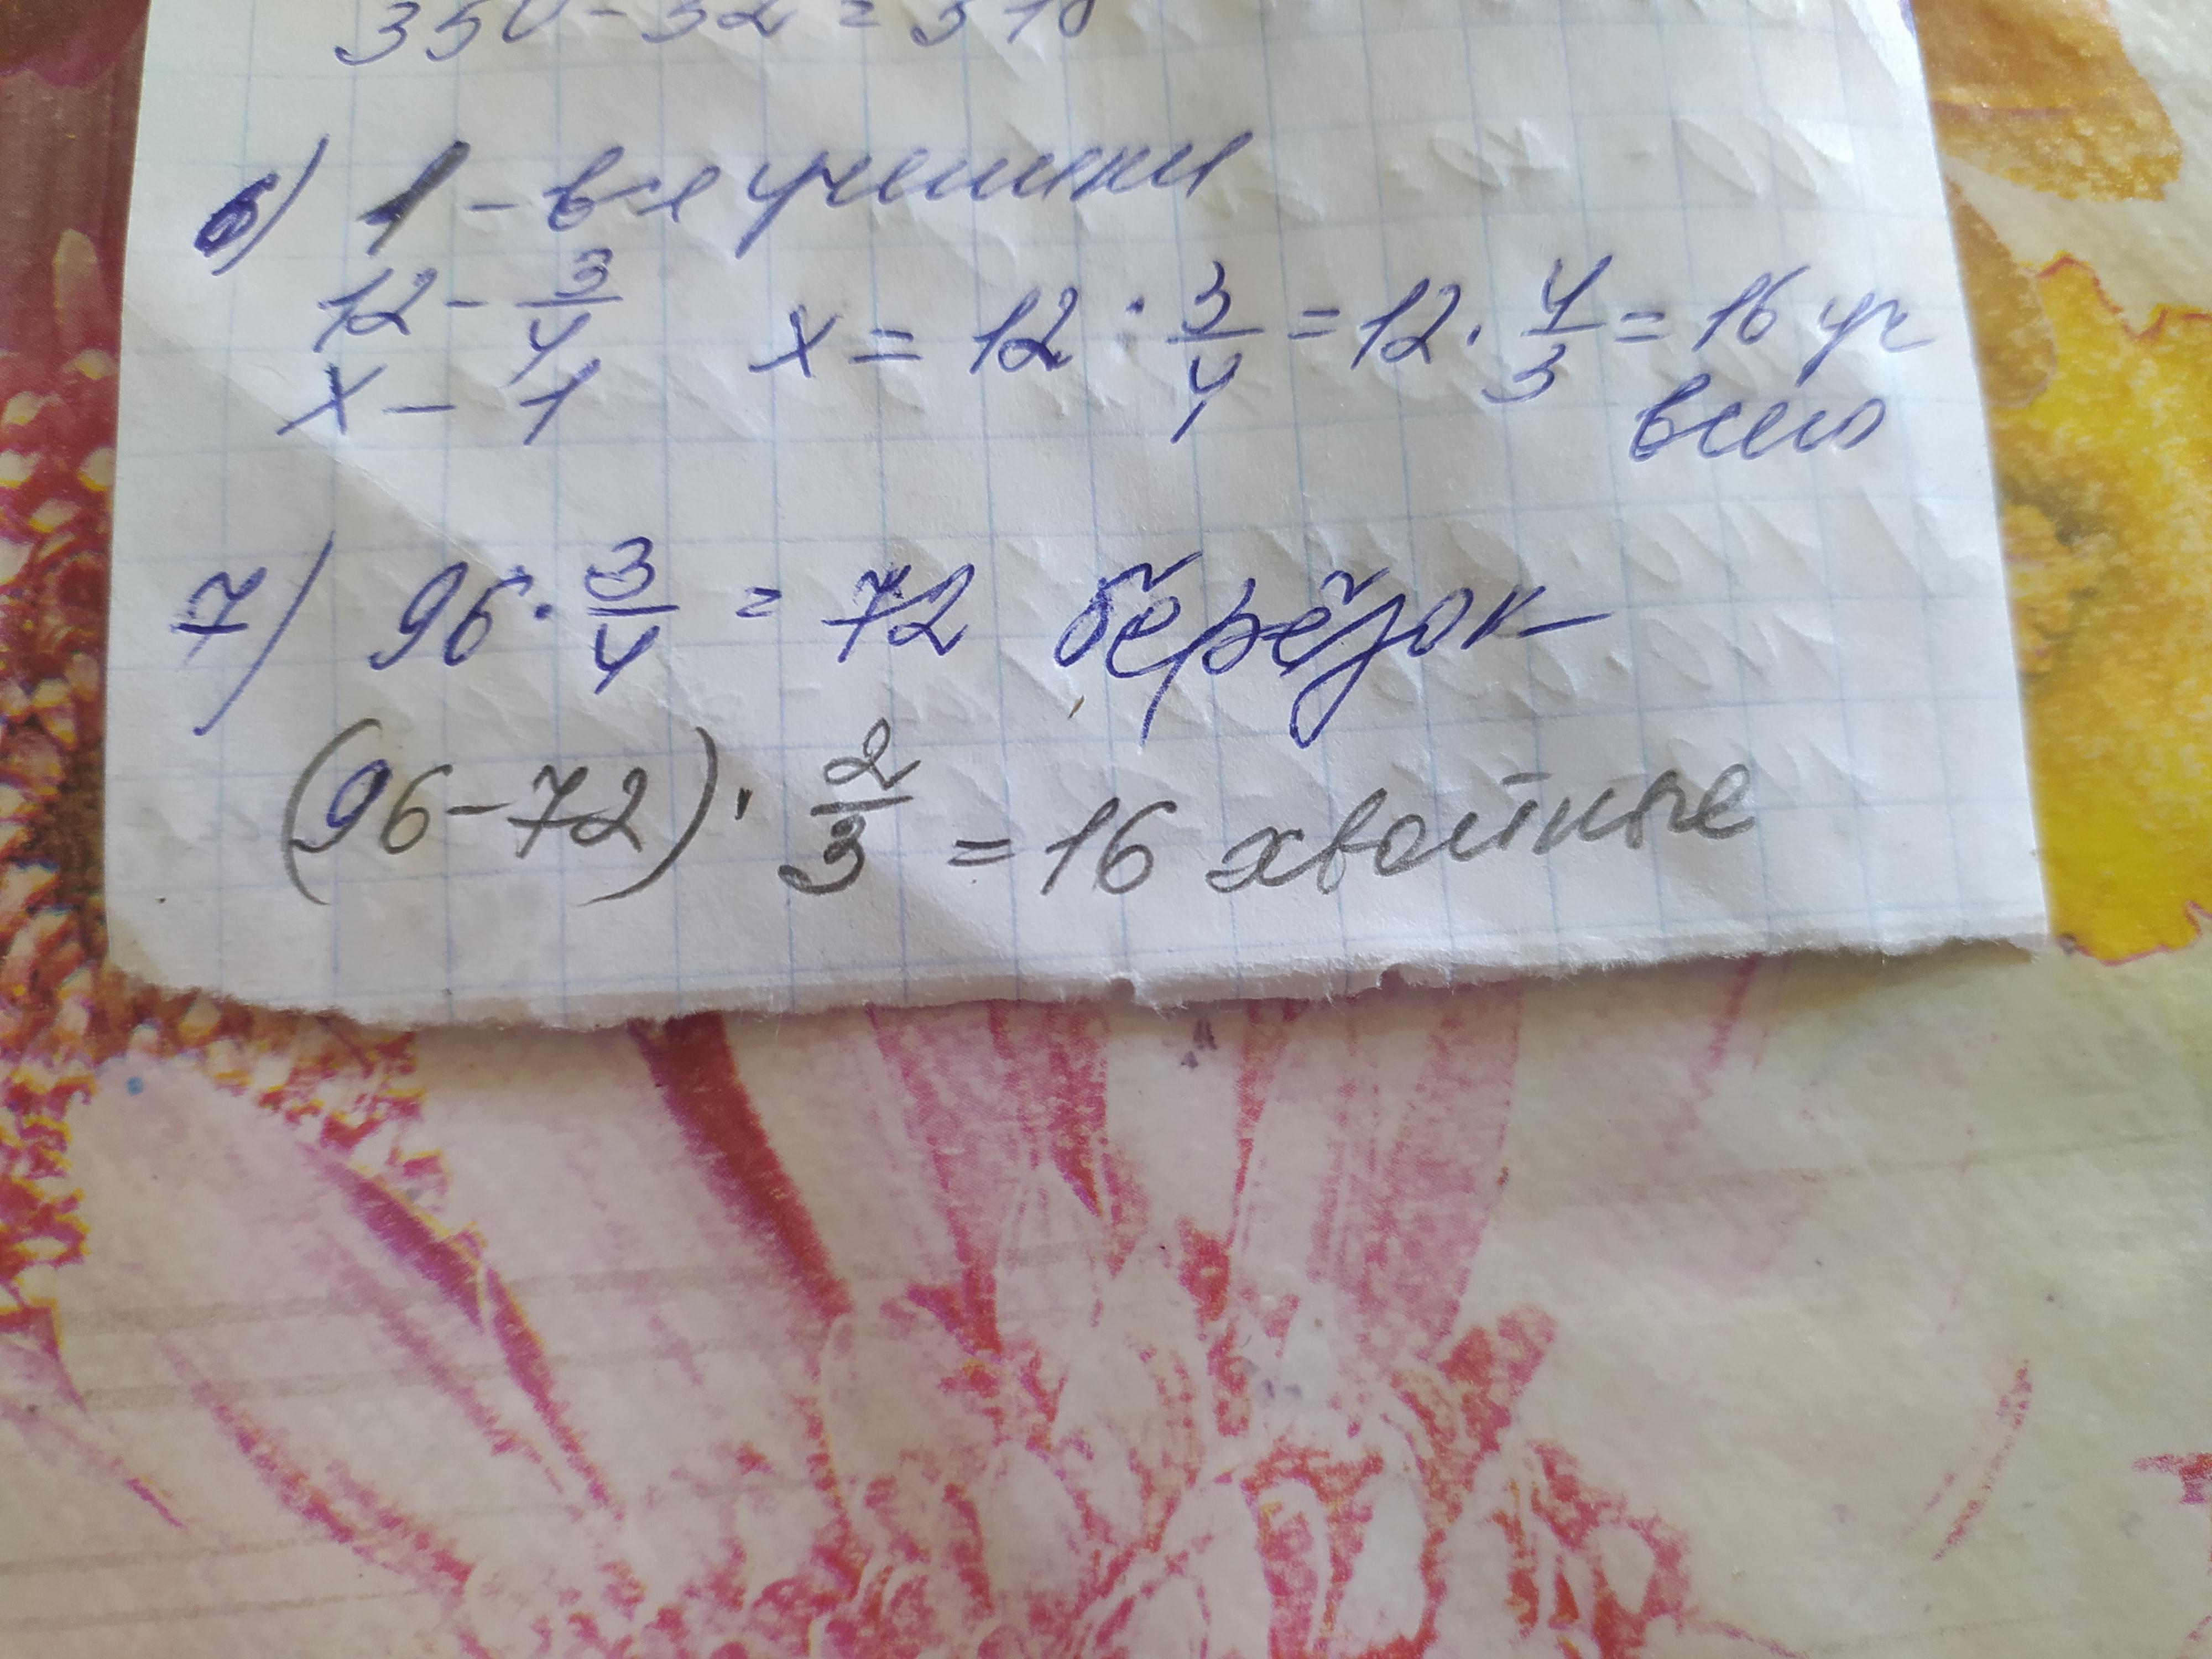 350 - 32 = 318
6) 1 - все ученики
12 - 3/4
x - 1 x = 12 : 3/4 = 12 · 4/3 = 16 уч
всего
7) 96 · 3/4 = 72 берёзок
(96 - 72) · 2/3 = 16 хвойные